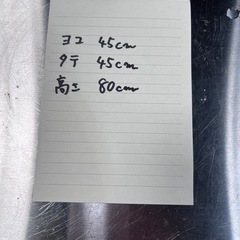 ヨコ 45cm
タテ 45cm
高さ 80cm